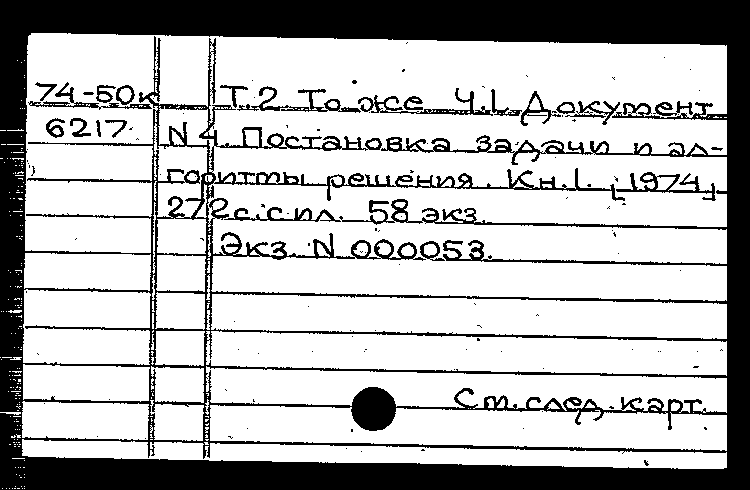 74-50к Т.2 То же Ч.1. Документ
6217 N 4. Постановка задачи и ал-
горитмы решения. Кн.1. [1974]
272с. с ил. 58 экз.
Экз. N 000053.
См. след. карт.